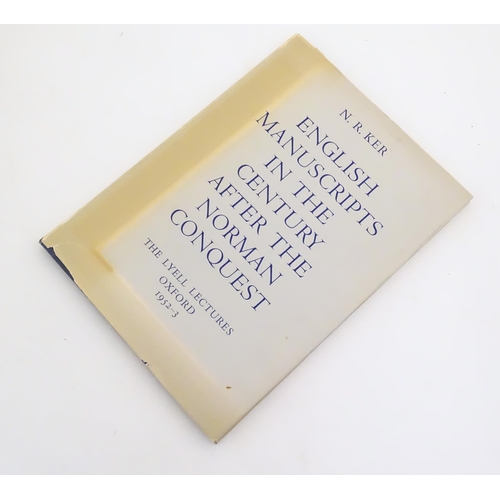 N. R. KER
ENGLISH
MANUSCRIPTS
IN THE
CENTURY
AFTER THE
NORMAN
CONQUEST
THE LYELL LECTURES
OXFORD
1952-3